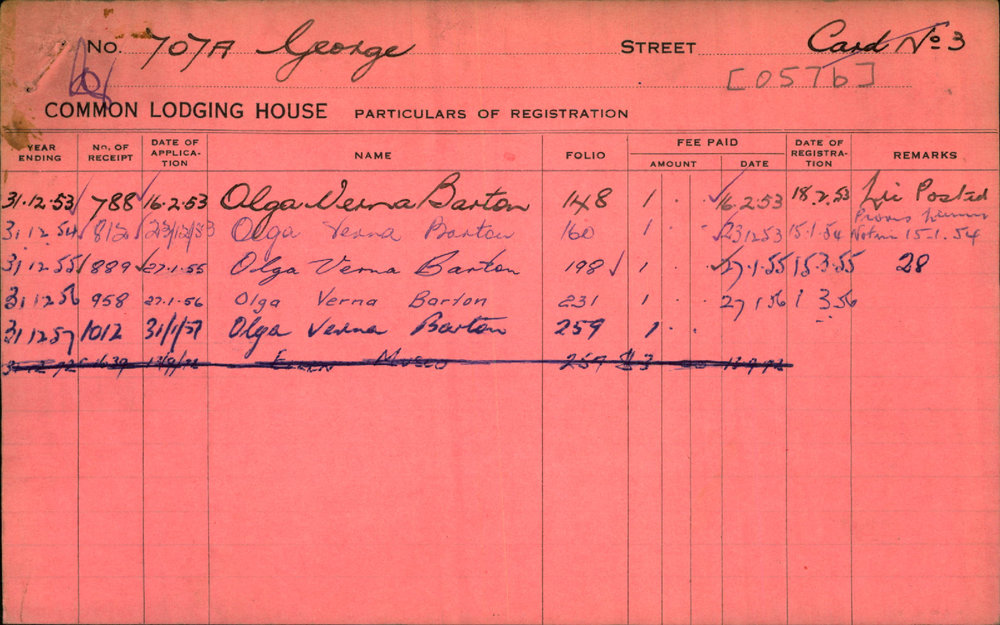 No. 707A George STREET Card No 3
[057b]
COMMON LODGING HOUSE PARTICULARS OF REGISTRATION
YEAR ENDING No. OF RECEIPT DATE OF APPLICA- TION NAME FOLIO FEE PAID AMOUNT DATE DATE OF REGISTRA- TION REMARKS
31.12.53 788 16.2.53 Olga Verna Barton 148 1 . . 16.2.53 18.2.53 Lic Posted
31.12.54 812 23/12/53 Olga Verna Barton 160 1 . . 231253 15.1.54 15.1.54
31.12.55 889 27.1.55 Olga Verna Barton 198 1 . . 27.1.55 15.3.55 28
31.12.56 958 27.1.56 Olga Verna Barton 231 1 . . 27 1 56 1 3 56
31 12 57 1012 31/1/57 Olga Verna Barton 259 1 . .
257 $3